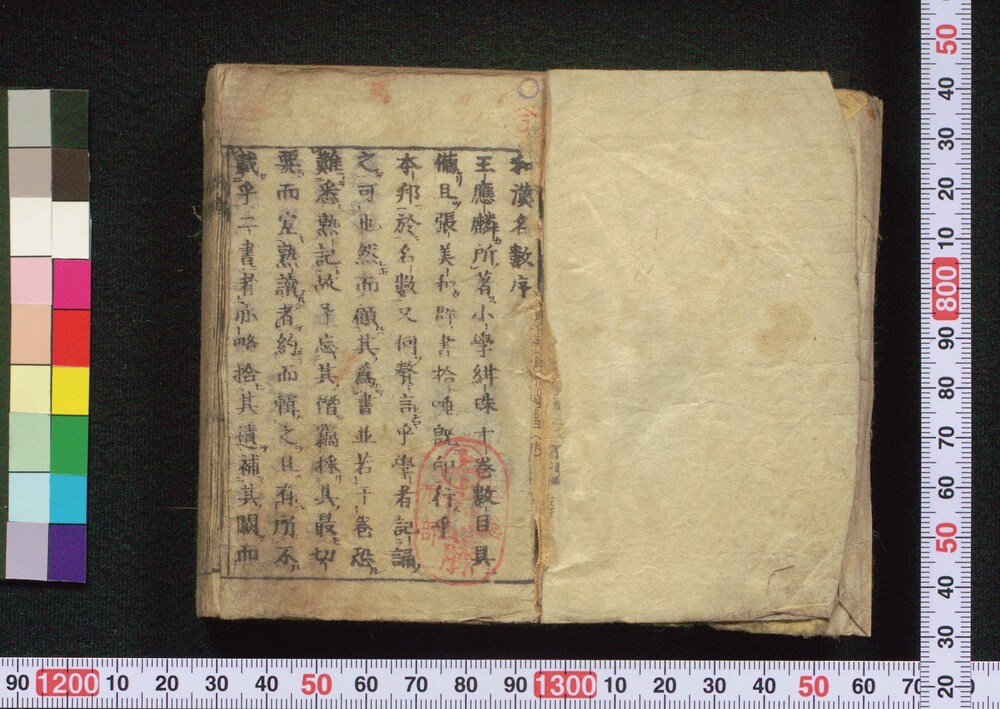 和漢名數序
王應麟所著小學紺珠十卷數目具
備且張美和群書拾唾既印行乎
本邦於名數又何贅言乎學者記誦
之可也然而顧其爲書並若干卷恐
難悉熟記故忘其僭竊採其最切
要而宜熟讀者約而輯之且有所不
載乎二書者亦略拾其遺補其闕而
90 1200 10 20 30 40 50 60 70 80 90 1300 10 20 30 40 50 60
50 40 30 20 10 800 90 80 70 60 50 40 30 20